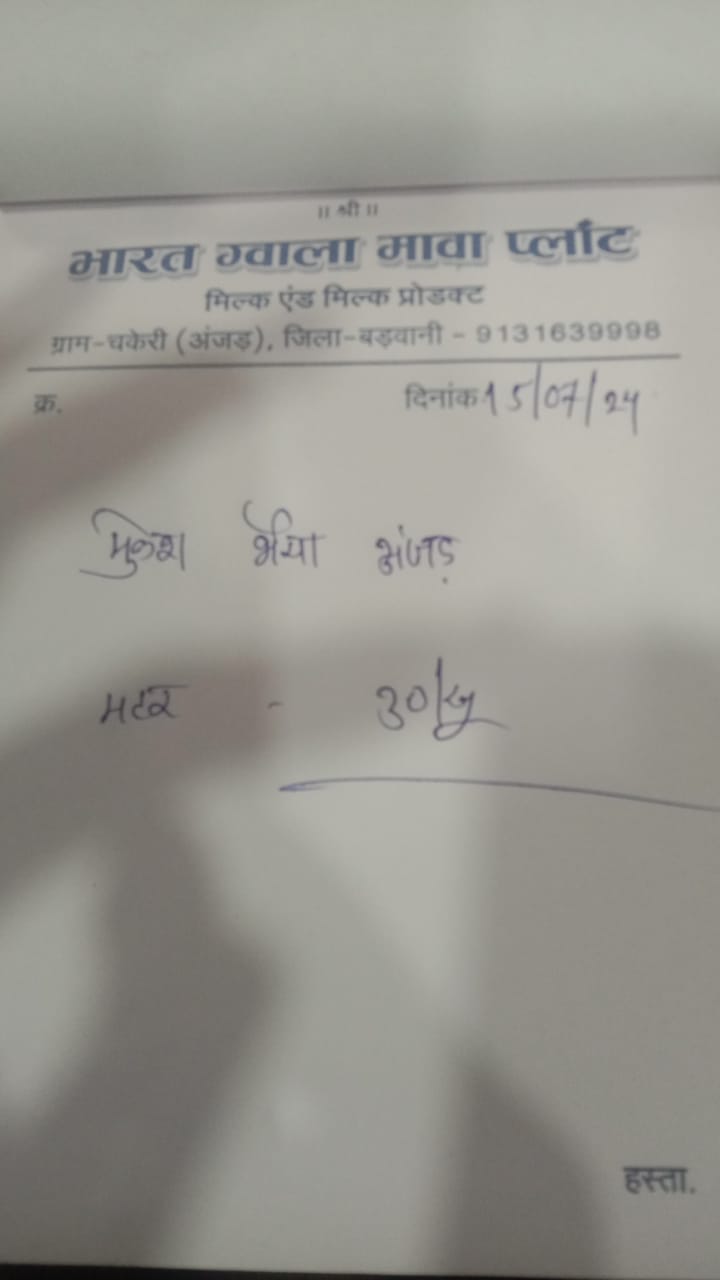 ॥ श्री ॥
भारत ग्वाला मावा प्लॉट
मिल्क एंड मिल्क प्रोडक्ट
ग्राम-चकेरी (अंजड़), जिला-बड़वानी - 9131639998
क्र. दिनांक 15/07/24
मुकेश भैया अंजड़
मटर - 30/
हस्ता.